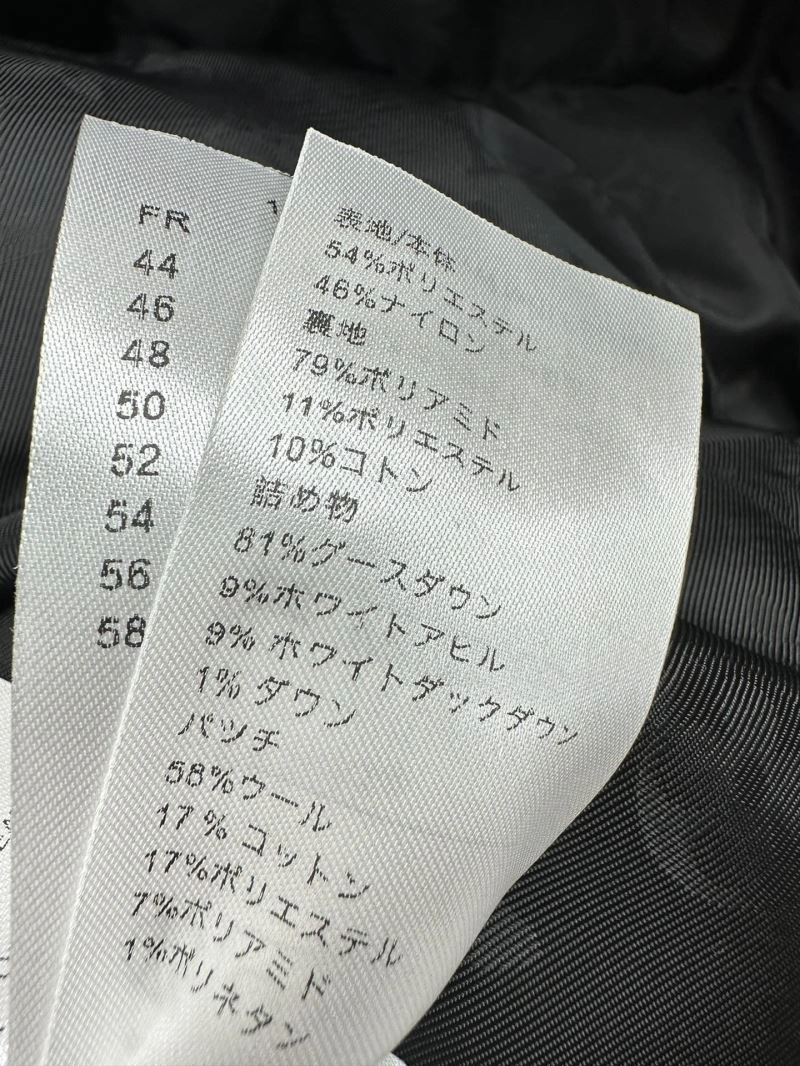 FR
44
46
48
50
52
54
56
58
表地/本体
54%ポリエステル
46%ナイロン
裏地
79%ポリアミド
11%ポリエステル
10%コトン
詰め物
81%グースダウン
9%ホワイトアヒル
9% ホワイトダックダウン
1% ダウン
パツチ
58%ウール
17% コットン
17%ポリエステル
7%ポリアミド
1%ポリネタン